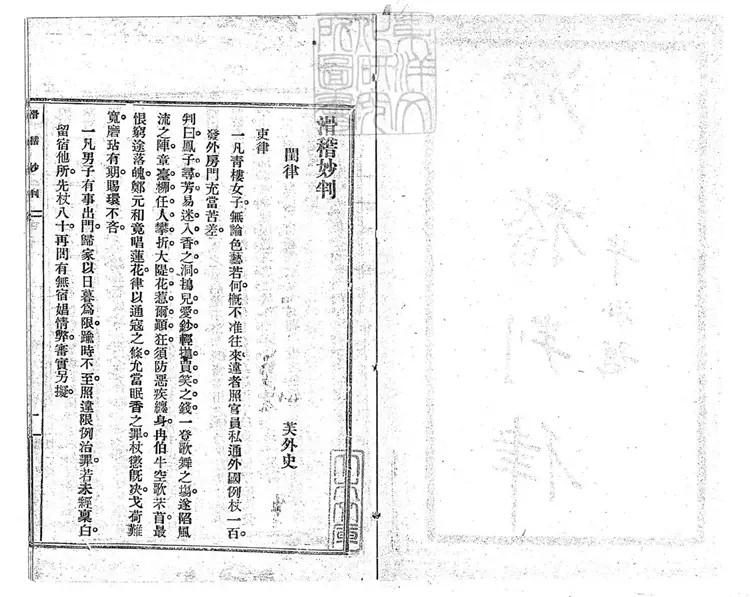 滑稽妙判
閨律
芙外史
吏律
一凡青樓女子無論色藝若何概不准往來違者照官員私通外國例杖一百
發外房門充當苦差
判曰鳳子尋芳易迷入香之洞鴇兒愛鈔輕抛買笑之錢一登歌舞之場遂陷風
流之陣章臺柳任人攀折大隄花惹爾顚狂須防惡疾纏身冉伯牛空歌芣苢最
恨窮途落魄鄭元和竟唱蓮花律以通寇之條允當眠香之罪杖懲旣决戈荷難
寬磨玷有期賜環不吝
一凡男子有事出門歸家以日暮爲限踰時不至照違限例治罪若未經稟白
留宿他所先杖八十再問有無宿娼情弊審實另擬
滑稽妙判
一